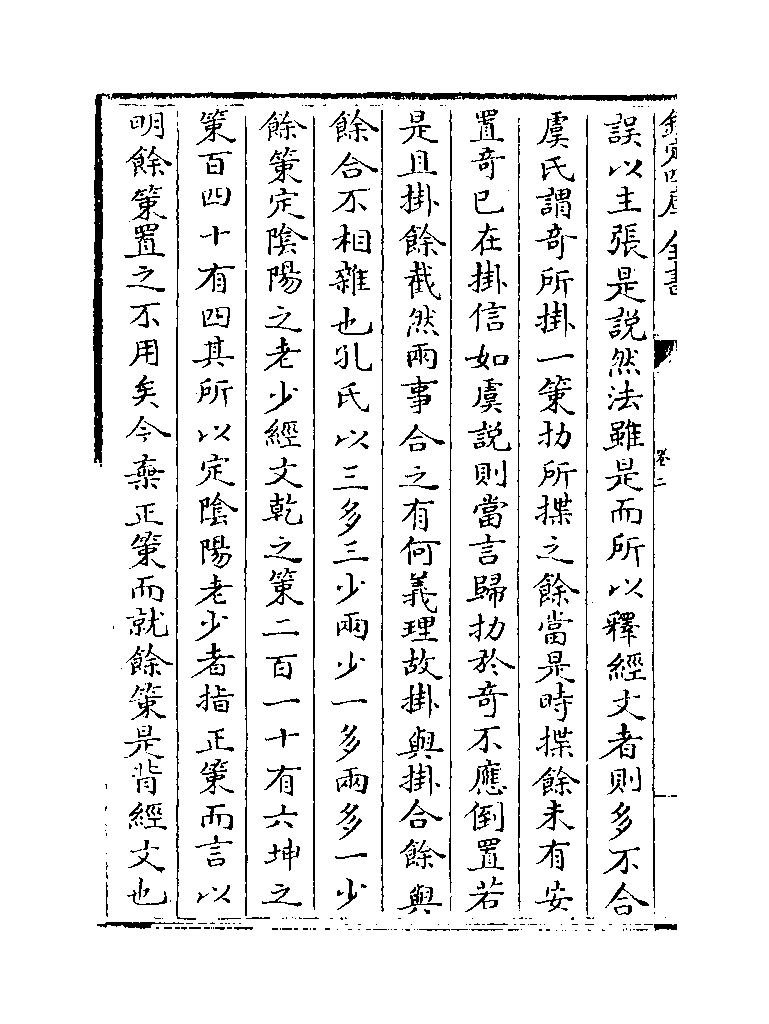 欽定四庫全書
卷二
誤以主張是説然法雖是而所以釋經文者則多不合
虞氏謂竒所掛一策扐所揲之餘當是時揲餘未有安
置竒已在掛信如虞説則當言歸扐於竒不應倒置若
是且掛餘截然兩事合之有何義理故掛與掛合餘與
餘合不相雜也孔氏以三多三少兩少一多兩多一少
餘策定陰陽之老少經文乾之策二百一十有六坤之
策百四十有四其所以定陰陽老少者指正策而言以
明餘策置之不用矣今棄正策而就餘策是背經文也